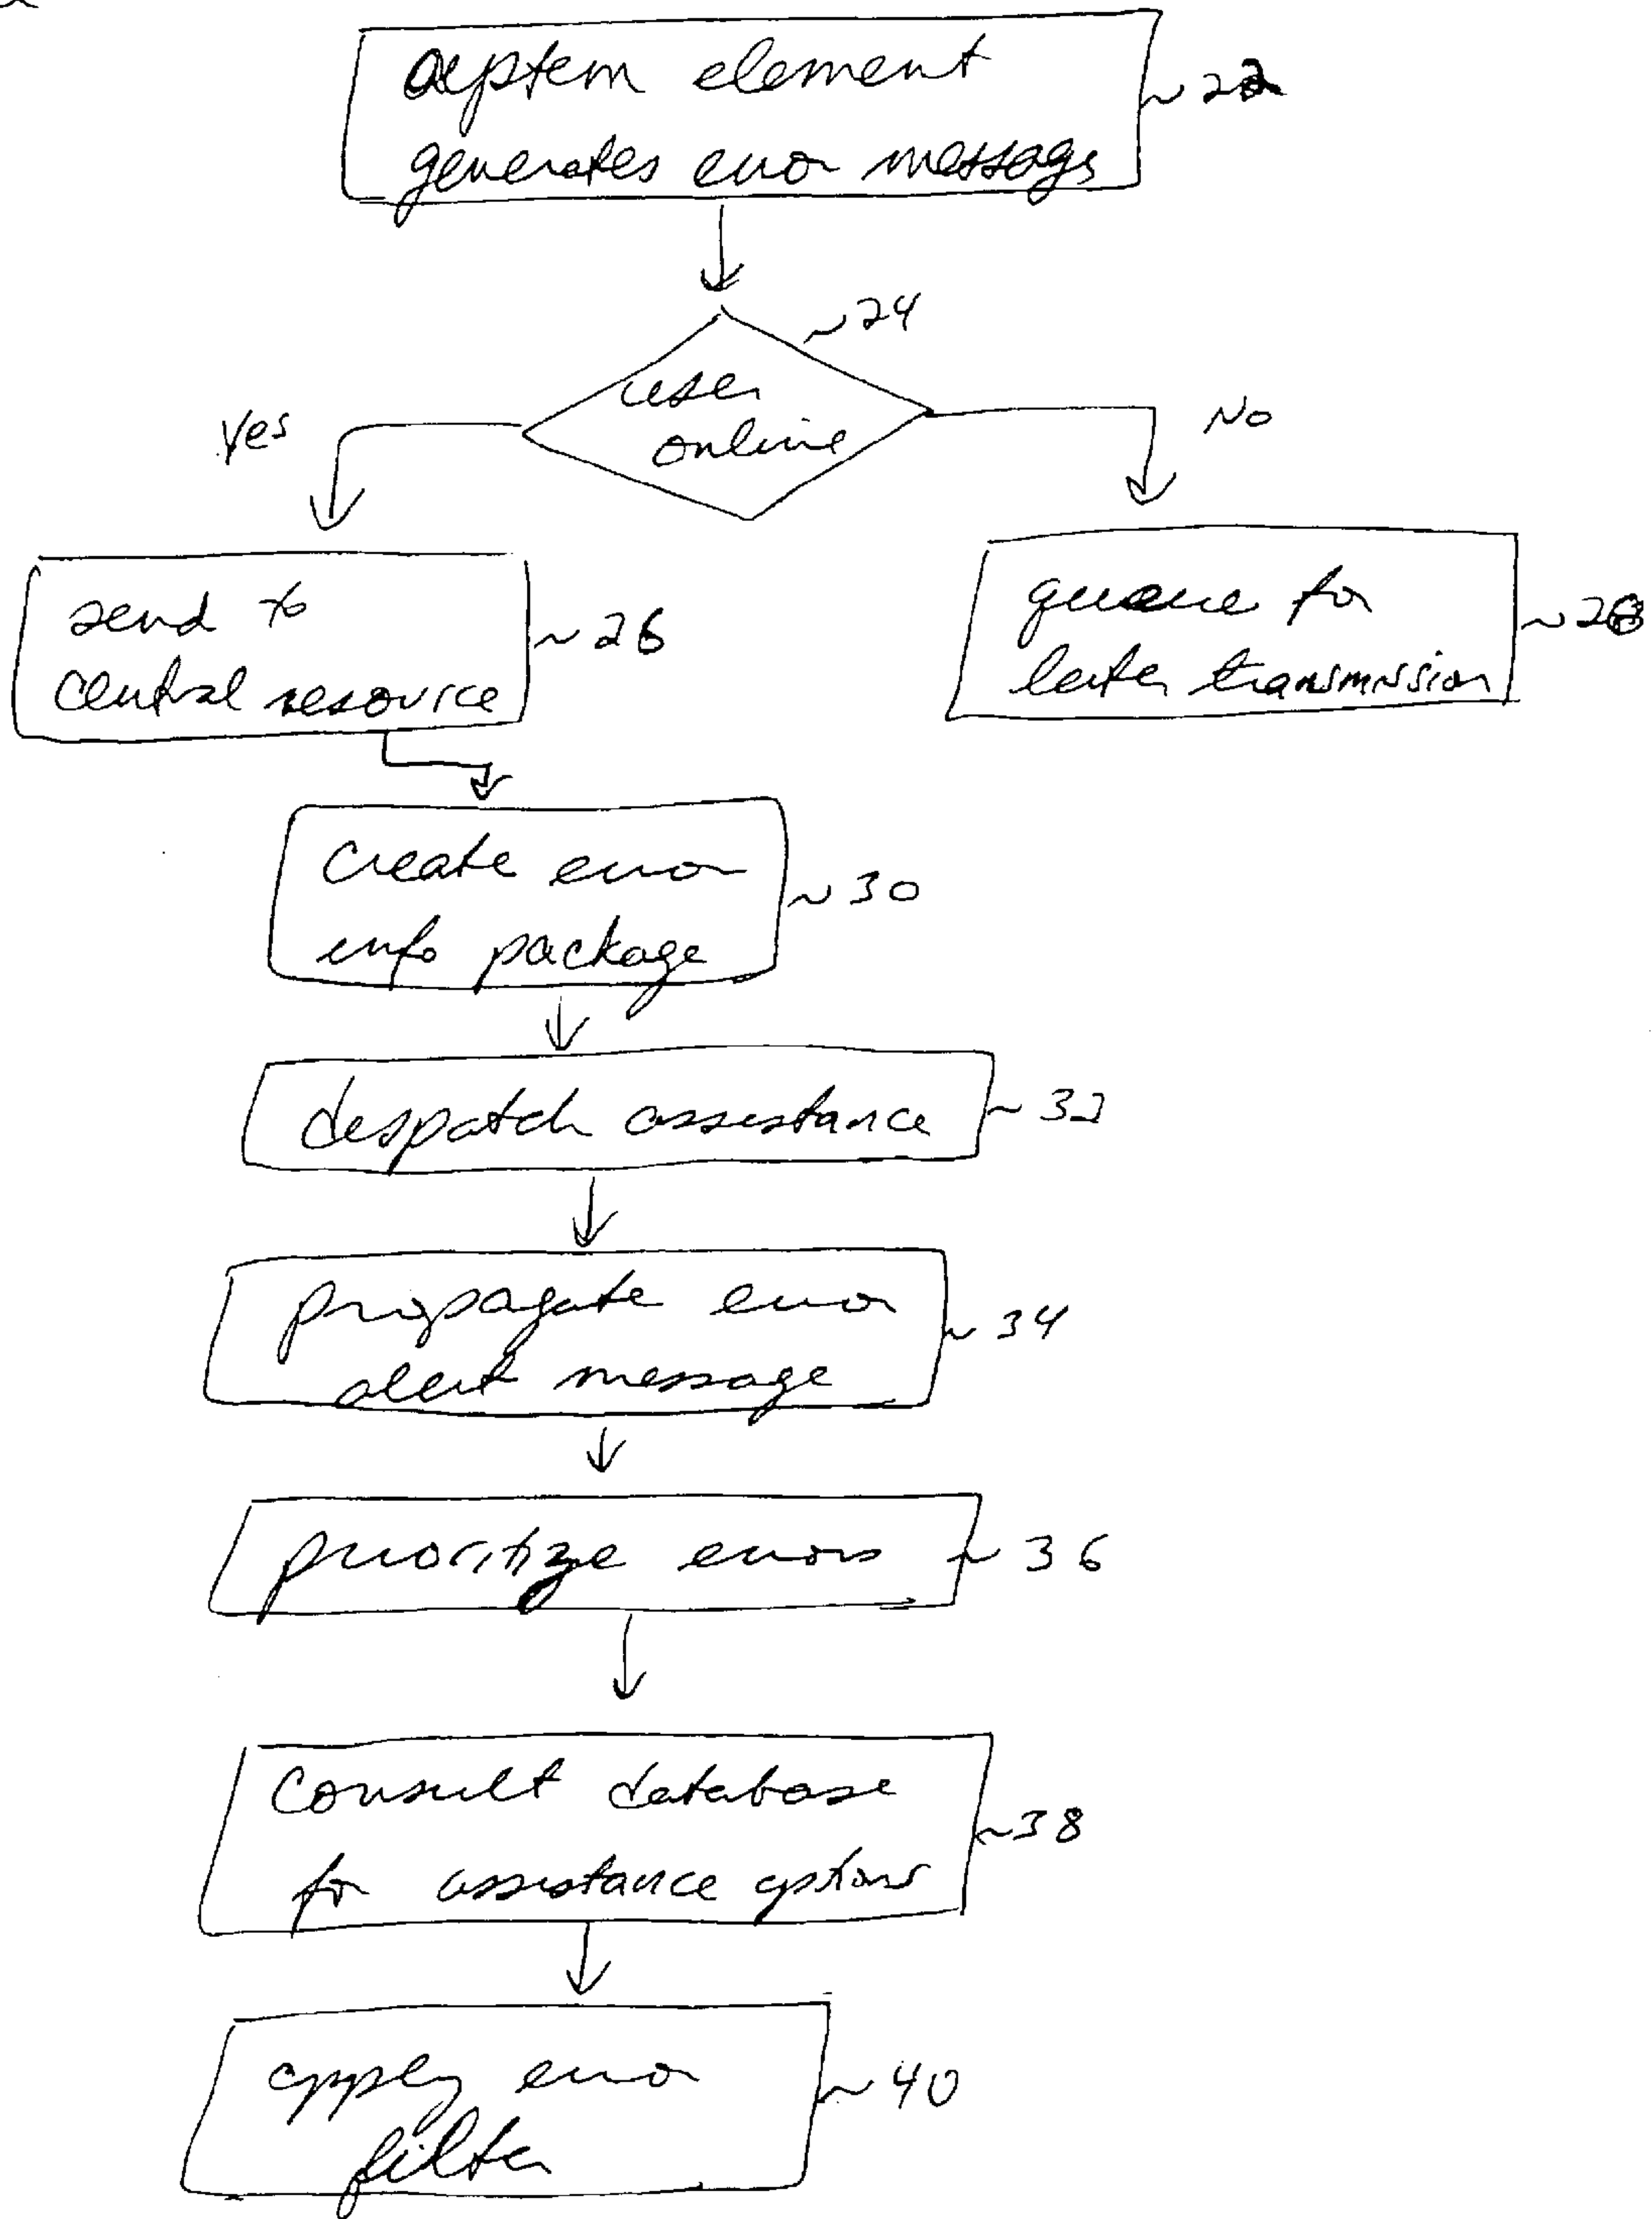 system element ~22
generates error message
~24
user
online
Yes
No
send to
central resource
~26
queue for
later transmission
~28
create error
info package
~30
despatch assistance ~32
propagate error
alert message
~34
prioritize errors ~36
Consult database
for assistance options
~38
apply error
filter
~40